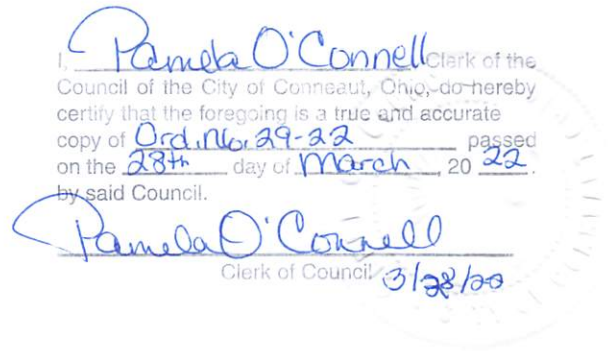 I, Pamela O'Connell Clerk of the
Council of the City of Conneaut, Ohio, do hereby
certify that the foregoing is a true and accurate
copy of Ord. No. 29-22 passed
on the 28th day of March, 20 22.
by said Council.
Pamela O'Connell
Clerk of Council 3/28/22